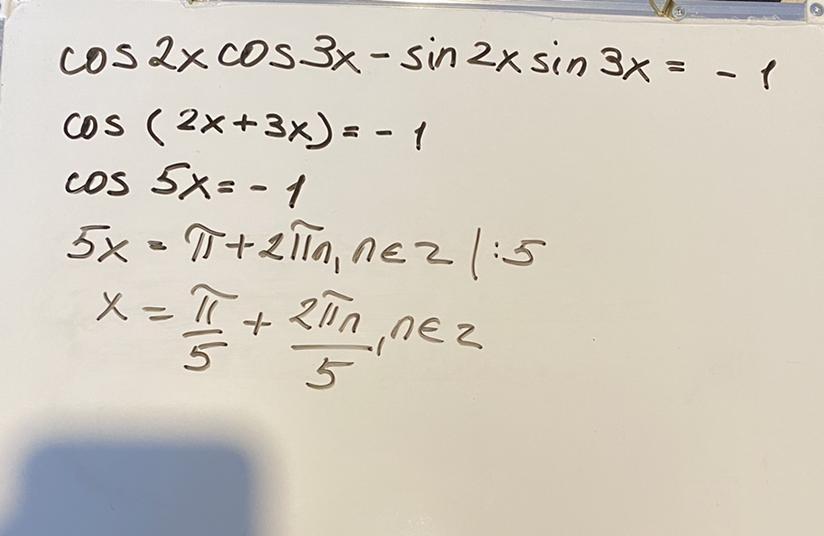 cos 2x cos 3x - sin 2x sin 3x = - 1
cos (2x+3x) = - 1
cos 5x = - 1
5x = π + 2πn, n ∈ z | : 5
x = π/5 + 2πn/5, n ∈ z